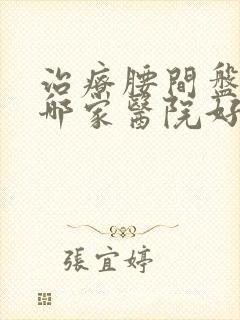 治療腰間盤
哪家醫院好
張宜婷